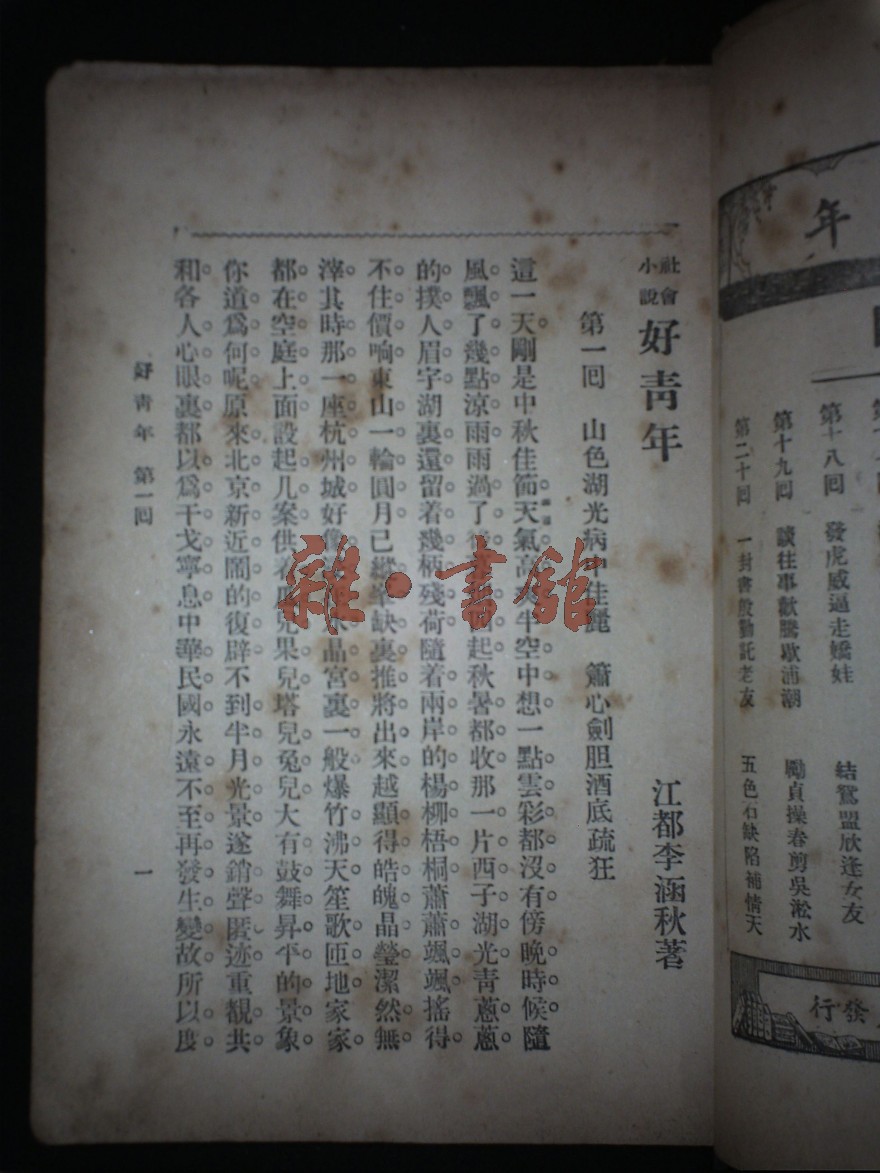 年
第十八回 發虎威逼走嬌娃 結鴛盟欣逢女友
第十九回 談往事歡騰歇浦潮 勵貞操春剪吳淞水
第二十回 一封書殷勤託老友 五色石缺陷補情天
發行
社會小說 好青年 江都李涵秋著
第一回 山色湖光病中佳麗 簫心劍胆酒底疏狂
這一天剛是中秋佳節天氣高半空中想一點雲彩都沒有傍晚時候隨
風飄了幾點涼雨雨過了起秋暑都收那一片西子湖光青蔥蔥
的撲人眉宇湖裏還留着幾柄殘荷隨着兩岸的楊柳梧桐蕭蕭颯颯搖得
不住價响東山一輪圓月已缺裏推將出來越顯得皓魄晶瑩潔然無
滓其時那一座杭州城好晶宮裏一般爆竹沸天笙歌匝地家家
都在空庭上面設起几案供着兒果兒塔兒兔兒大有鼓舞昇平的景象
你道爲何呢原來北京新近鬧的復辟不到半月光景遂銷聲匿迹重觀共
和各人心眼裏都以爲干戈寧息中華民國永遠不至再發生變故所以度
好青年 第一回 一
雜·書館